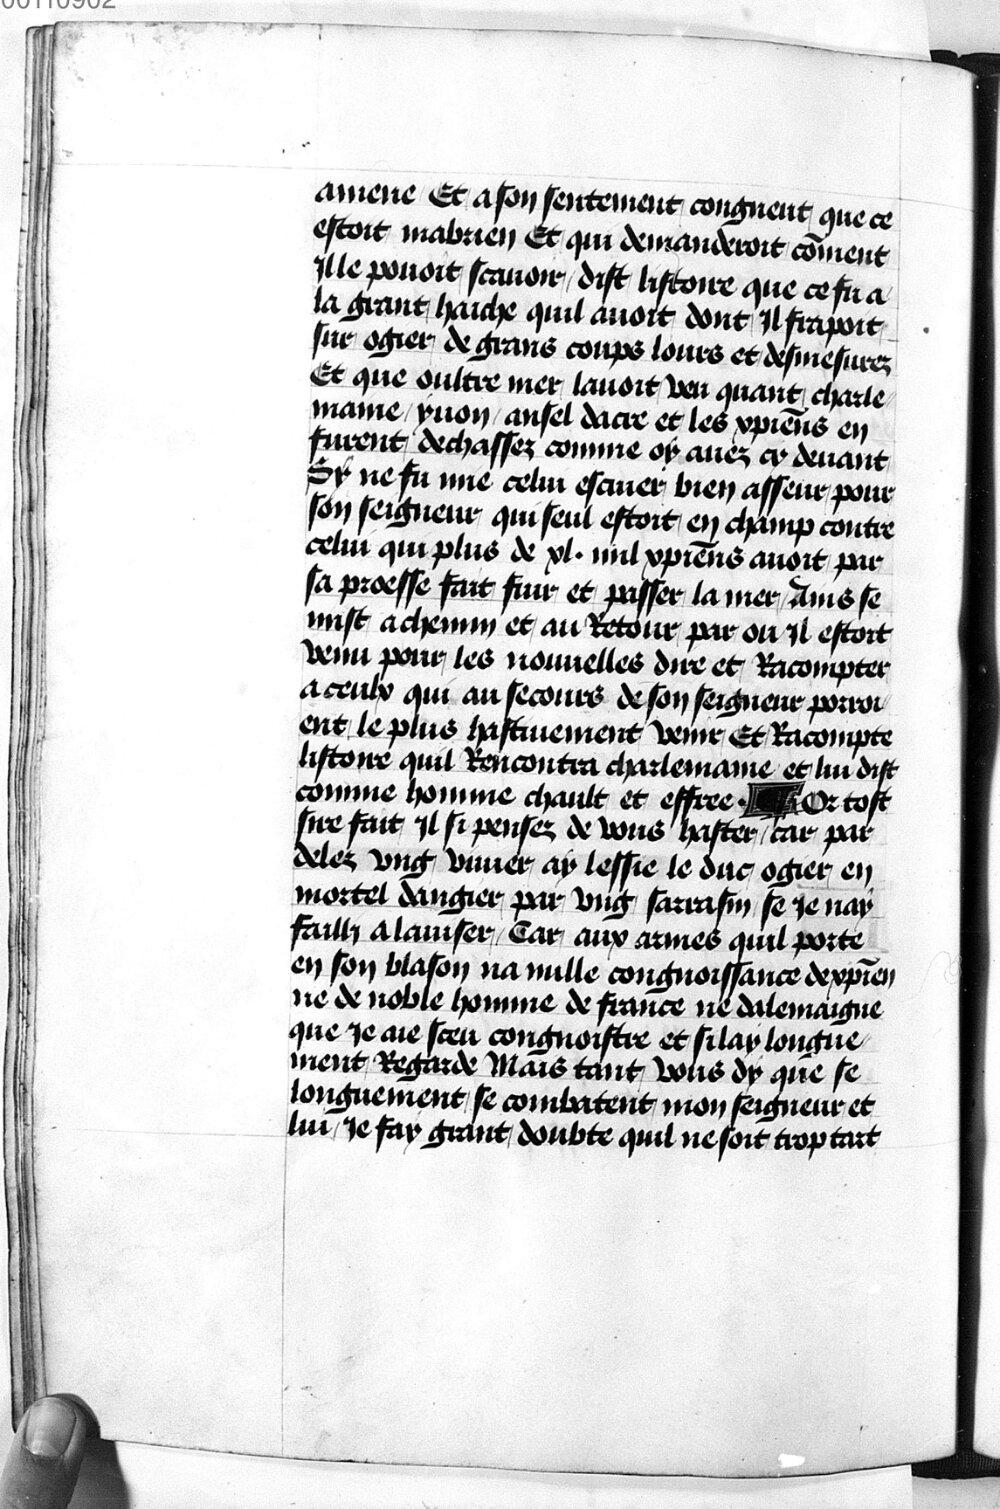 00110902
amene Et a son sentement congneut que ce
estoit mabrien Et qui demanderoit cōment
Il le pouoit scauoir / dist listoire que ce fu a
la grant haiche quil auoit dont Il frapoit
sur ogier de grans coups lours et desmesurez
Et que oultre mer lauoit veu quant charle
maine / yuon / ansel dacre et les xpiēns en
furent dechassez comme oy auez cy deuant
Sy ne fu mie celui escuier bien asseur pour
son seigneur qui seul estoit en champ contre
celui qui plus de xl. mil xpiēns auoit par
sa proesse fait fuir et passer la mer / Ains se
mist a chemin et au Retour par ou Il estoit
venu pour les nouuelles dire et Racompter
a ceulx qui au secours de son seigneur porroi
ent le plus hastiuement venir Et Racompte
listoire quil Rencontra charlemaine et lui dist
comme homme chault et effree . Or tost
sire fait Il si pensez de vous haster / car par
delez vng viuier ay lessie le duc ogier en
mortel dangier par vng sarrasin se Je nay
failly a lauiser / Car aux armes quil porte
en son blason na nulle congnoissance de xpiēn
ne de noble homme de france ne dalemaigne
que Je aie sceu congnoistre et si lay longue
ment Regarde Mais tant vous dy que se
longuement se combatent mon seigneur et
lui / Je fay grant doubte quil ne soit trop tart